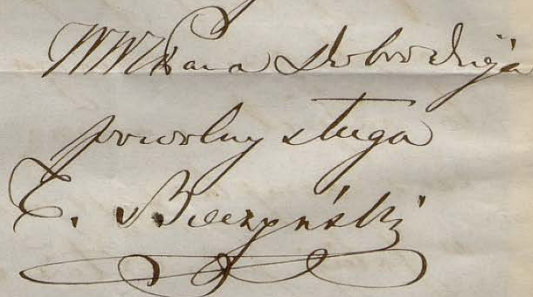 WW Pana Dobrodzieja
powolny sługa
E. Buczyński